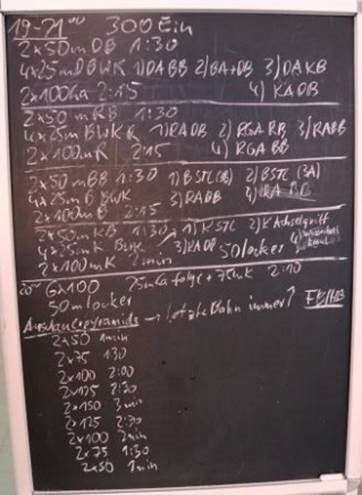 19-21⁰⁰ 300 Ein
2x50m DB 1:30
4x25m DBWK 1) DABB 2) BA+DB 3) DAKB
2x100 2:15 4) KADB
2x50 mRB 1:30
4x25m BWK R 1) RADB 2) RGA RB 3) RABB
2x100mR 2:15 4) RGA BB
2x50 mBB 1:30 1) BSTL 2) BSTL (3A)
4x25m B BWK 3) RADB 4)
2x100mB 2:15
2x50m KB 1:30 1) KSTL 2) K Achselgriff
4x25mK BWK 3) KADB 50 locker 4)
2x100mK 2min
6x100 25m folge + 75mK 2:10
50m locker
→ letzte Bahn immer?
2x50 1min
2x75 130
2x100 2:00
2x125 2:30
2x150 3min
2x125 2:30
2x100 2min
2x75 1:30
2x50 1min